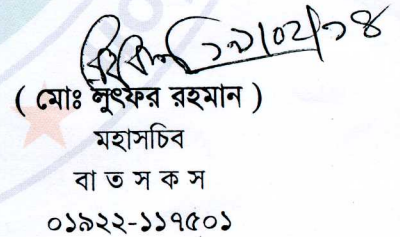 ( মোঃ লুৎফর রহমান )
মহাসচিব
বা ত স ক স
০১৯২২-১১৭৫০১